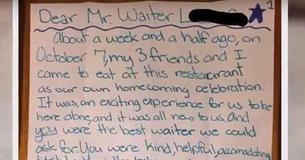 Dear Mr. Waiter L
About a week and a half ago, on
October 7, my 3 friends and I
came to eat at this restaurant
as our own homecoming celebration.
It was, an exciting experience for us to be
here alone, and it was all new to us. And
you were the best waiter we could
ask for. You were kind, helpful, accomadating